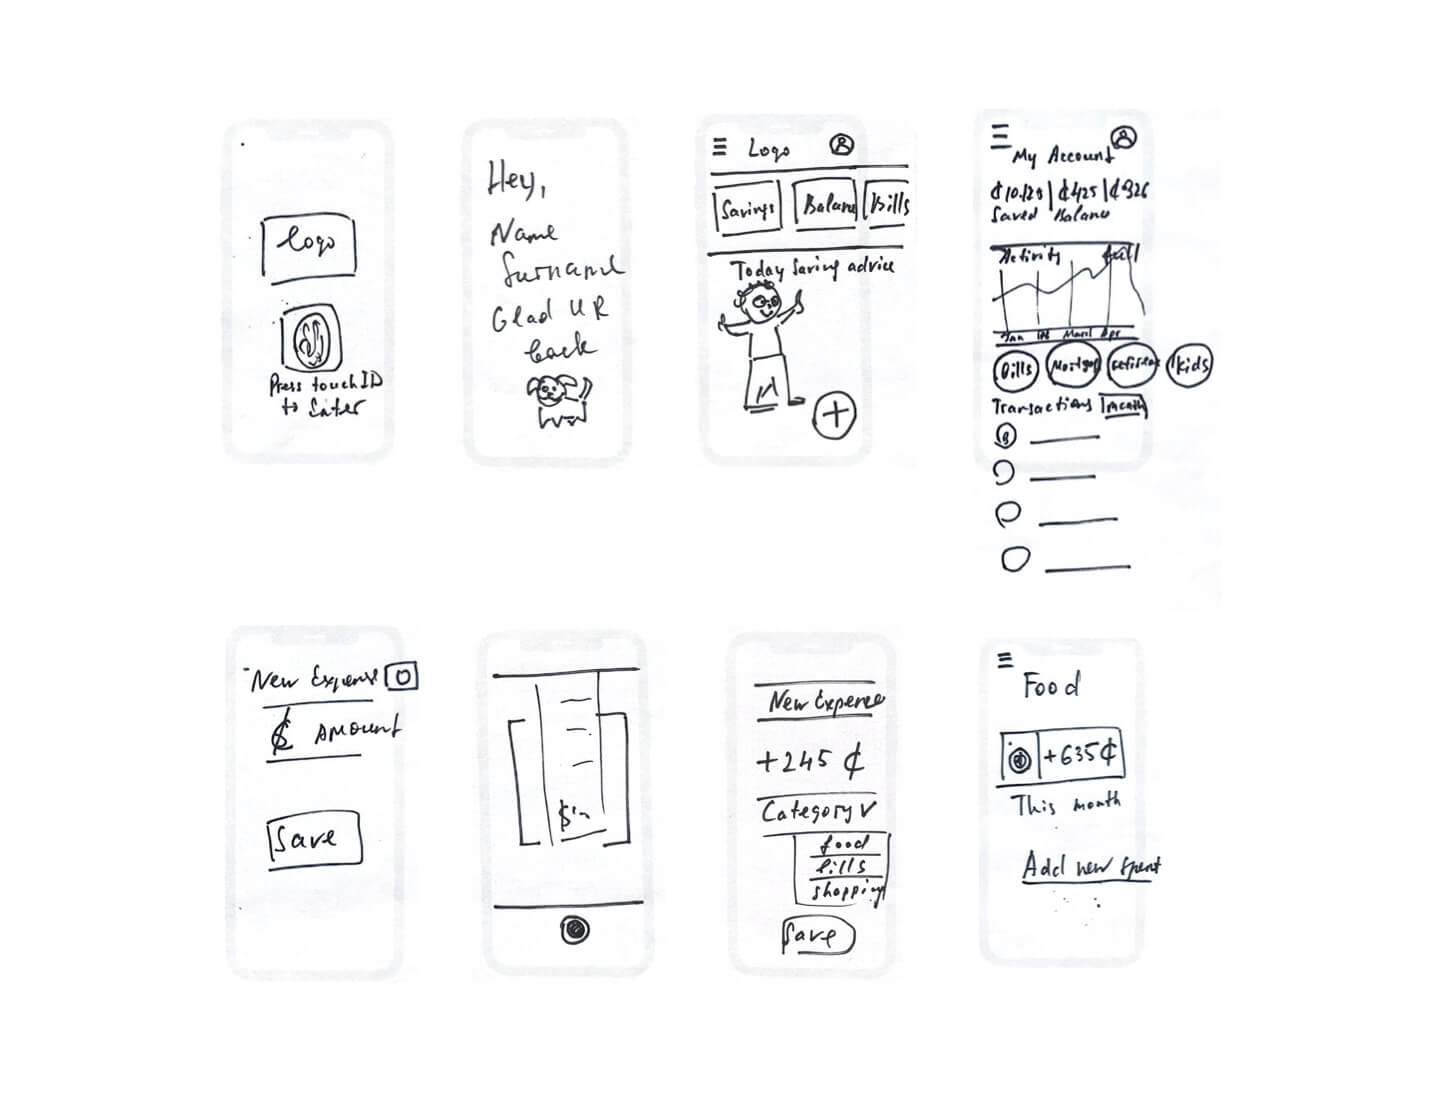 Logo
Press touch ID
to Enter
Hey,
Name
Surname
Glad U R
back
Logo
Savings
Balance
Bills
Today Saving advice
My Account
₵ 10.123 | ₵ 425 | ₵ 926
Saved Balance
Activity full
Jan Feb March Apr
Bills
Mortgage
kids
Transactions month
New Expense
₵ Amount
Save
New Expense
+245 ₵
Category
food
bills
shopping
Save
Food
+635₵
This month
Add new spent